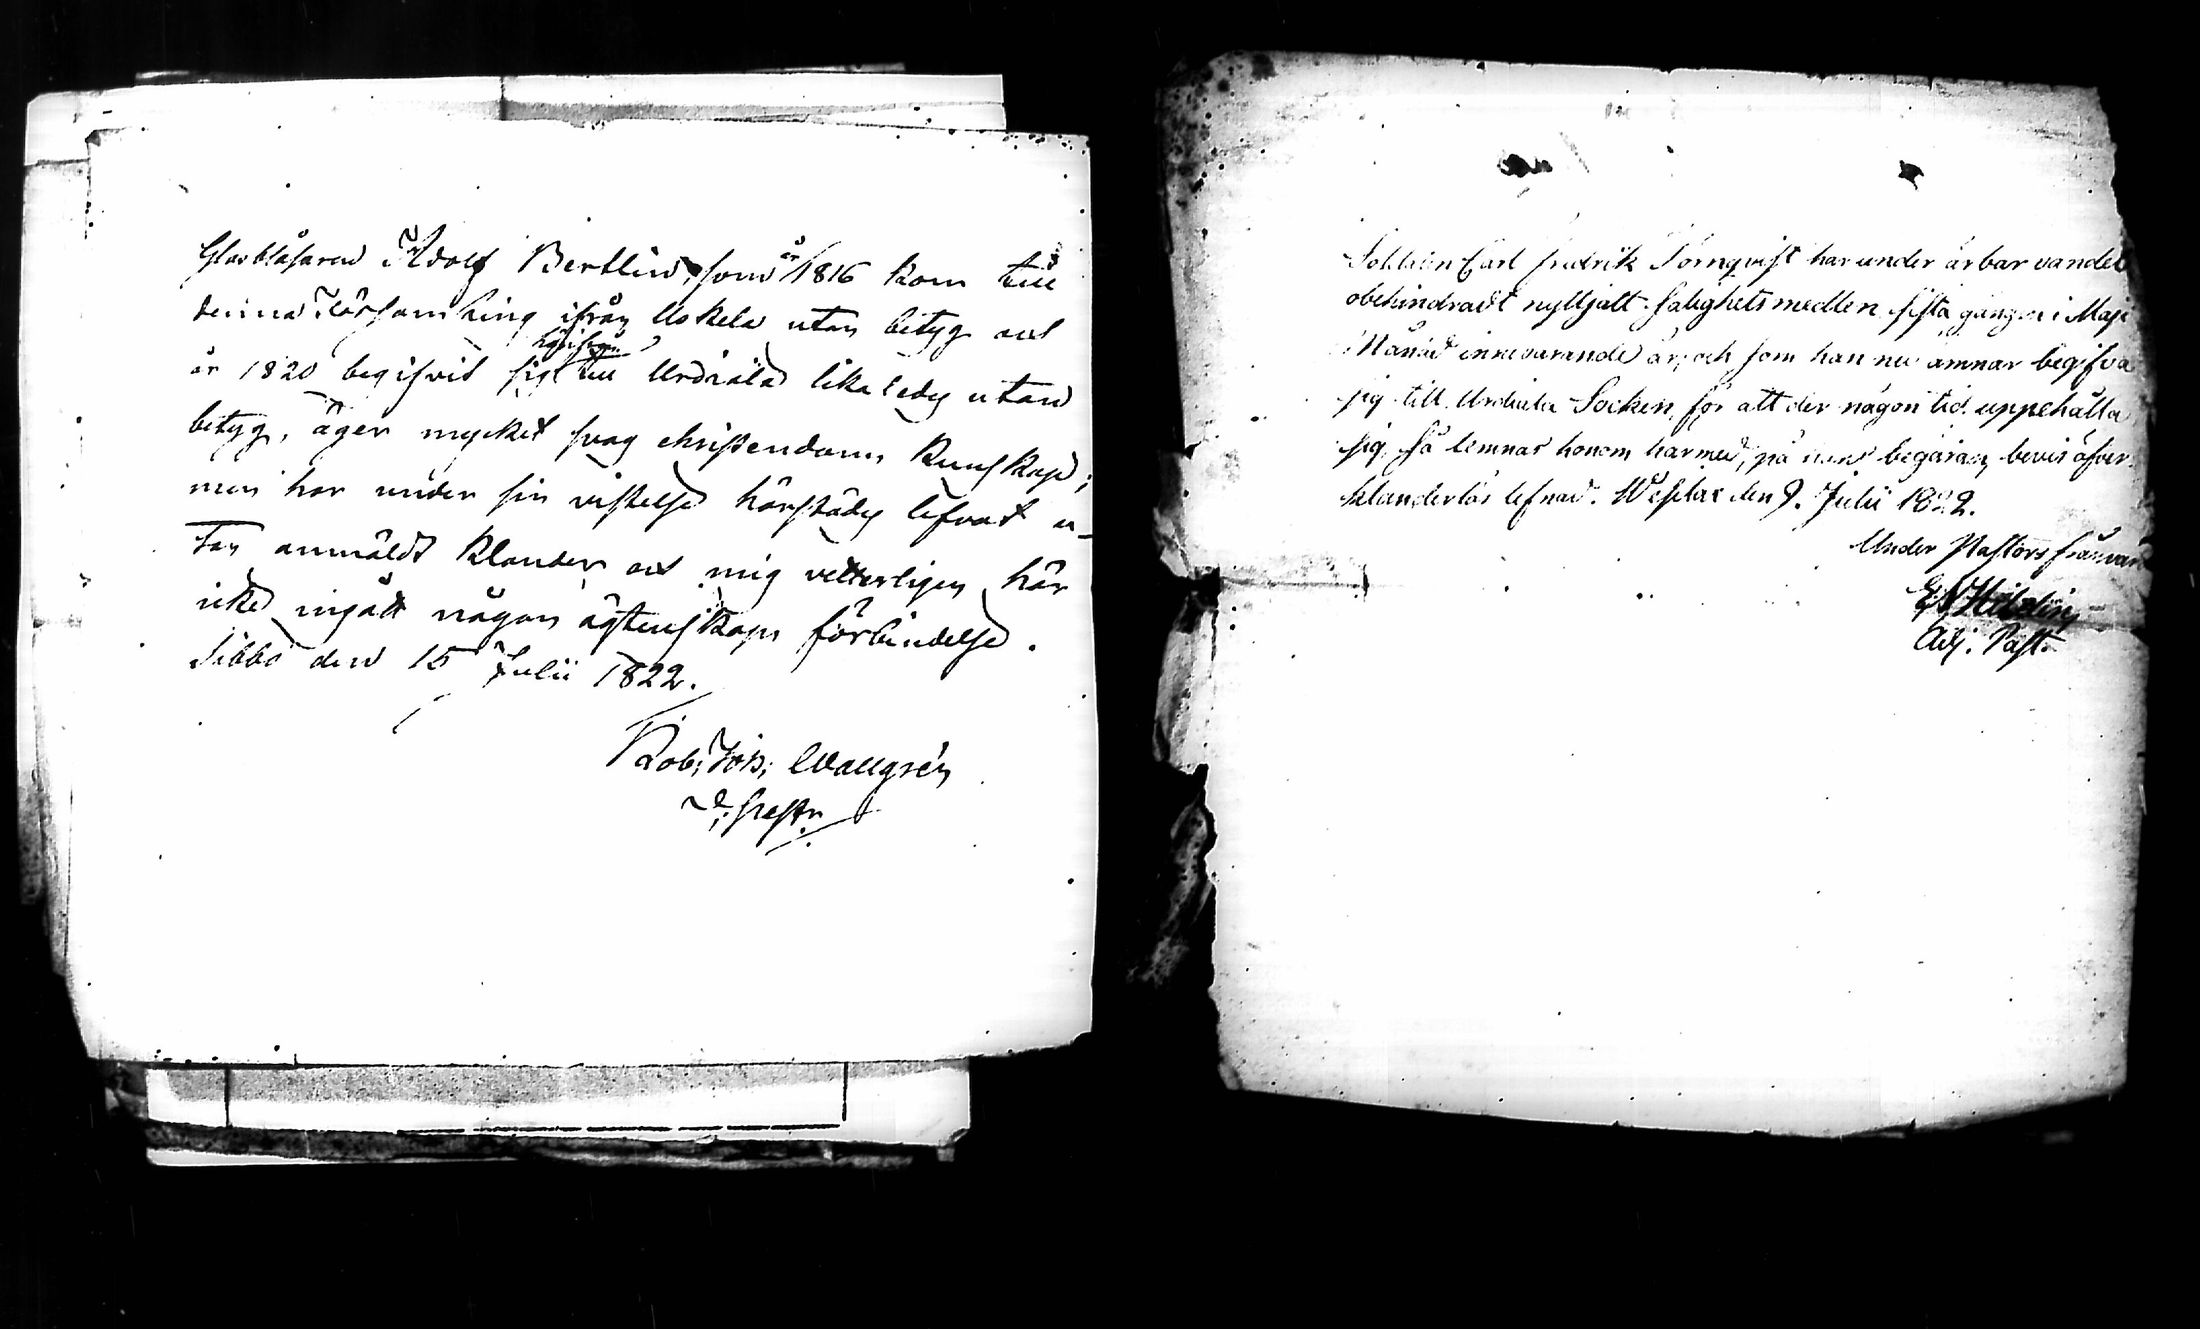 Glasblåsaren Adolf Bertlin, som år 1816 kom till
denna Församling ifrån Uskela utan betyg och
år 1820 begifvit sig till Urdiala likaledes utan
betyg, äger mycket svag christendoms kunskap;
men har under sin vistelse härstädes lefvat u-
tan anmäldt klander och mig vetterligen här
icke ingått någon ägtenskaps förbindelse.
Sibbo den 15 Julii 1822.
Rob. Joh. Wallgrén
v. Past.
Soldaten Carl Fredrik Törnqvist har under ärbar vandel
obehindradt nyttjatt Salighetsmedlen, sista gången i Maji
Månad innevarande år; och som han nu ämnar begifva
sig till Urdiala Socken, för att der någon tid uppehålla
sig, så lemnas honom härmed, på hans begäran, bevis öfver
klanderlös lefnad. Westlax den 9. Julii 1822.
Under Pastors frånvaro
Adj. Past.